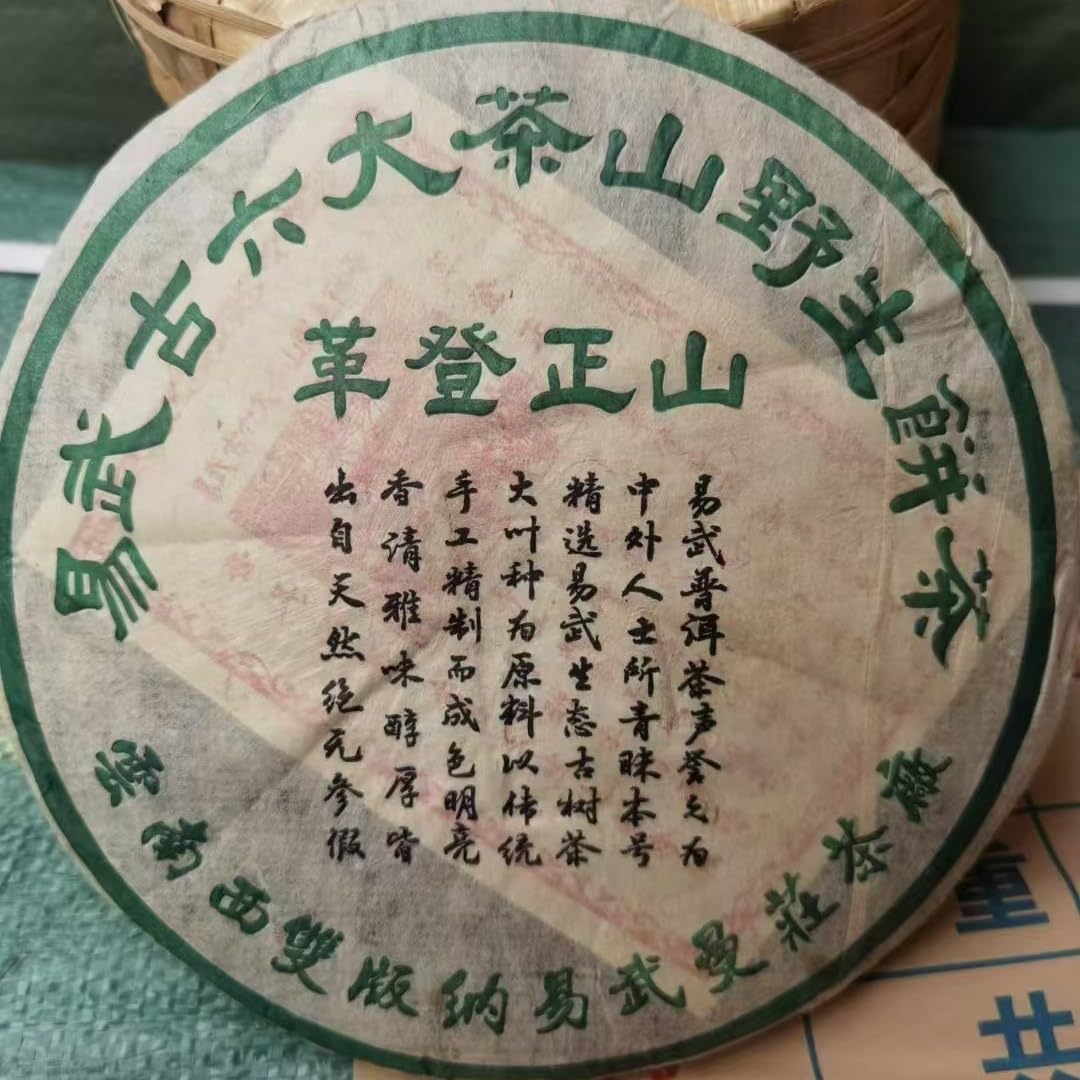 易武古六大茶山野生餅茶
革登正山
易武普洱茶声誉已为
中外人士所青睐本号
精选易武生态古树茶
大叶种为原料以传统
手工精制而成色明亮
香清雅味醇厚皆
出自天然绝无参假
雲南西雙版納易武曼莊
重
共